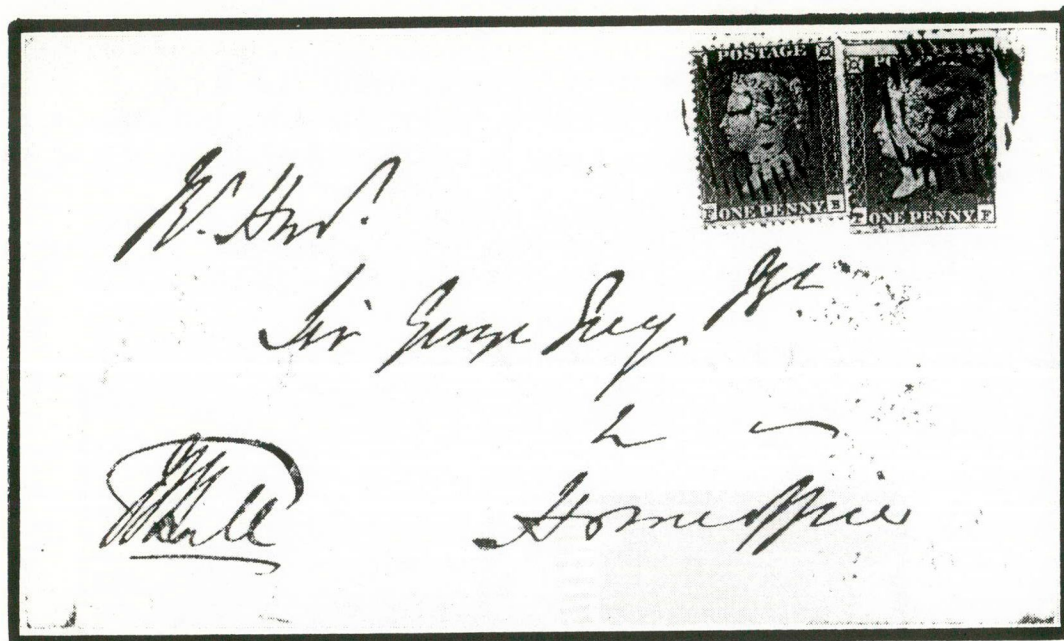 POSTAGE
ONE PENNY
F B
ONE PENNY
F
Rt. Honl.
Sir George Grey Bt
Home Office